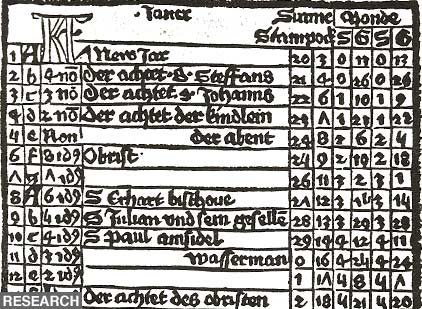 KL Janer Sunne Monde
Stainpock S G S G
1 A New Jar 20 3 0 11 0 13
2 b 4 no der achtet S Steffans 21 4 0 26 0 26
3 c 3 no der achtet S Johanns 22 6 1 10 1 9
4 d 2 no der achtet der kindlein 23 Λ 1 23 1 22
4 e Non der abent 24 8 2 6 2 4
6 f 8 id9 Obrist 24 9 2 19 2 18
Λ g Λ id9 26 11 3 2 3 1
8 A 6 id9 S Erhart bischove 2Λ 12 3 14
9 b 4 id9 S Julian und sein geselle 28 13 3 29 3 28
10 c 4 id9 S Paul ainsidel 29 14 4 12 4 11
11 d 3 id9 wasserman 0 16 4 24 4 24
12 e 2 id9 1 1Λ 4 8 4 Λ
der achtet des obristen 2 18 4 21 4 20
RESEARCH